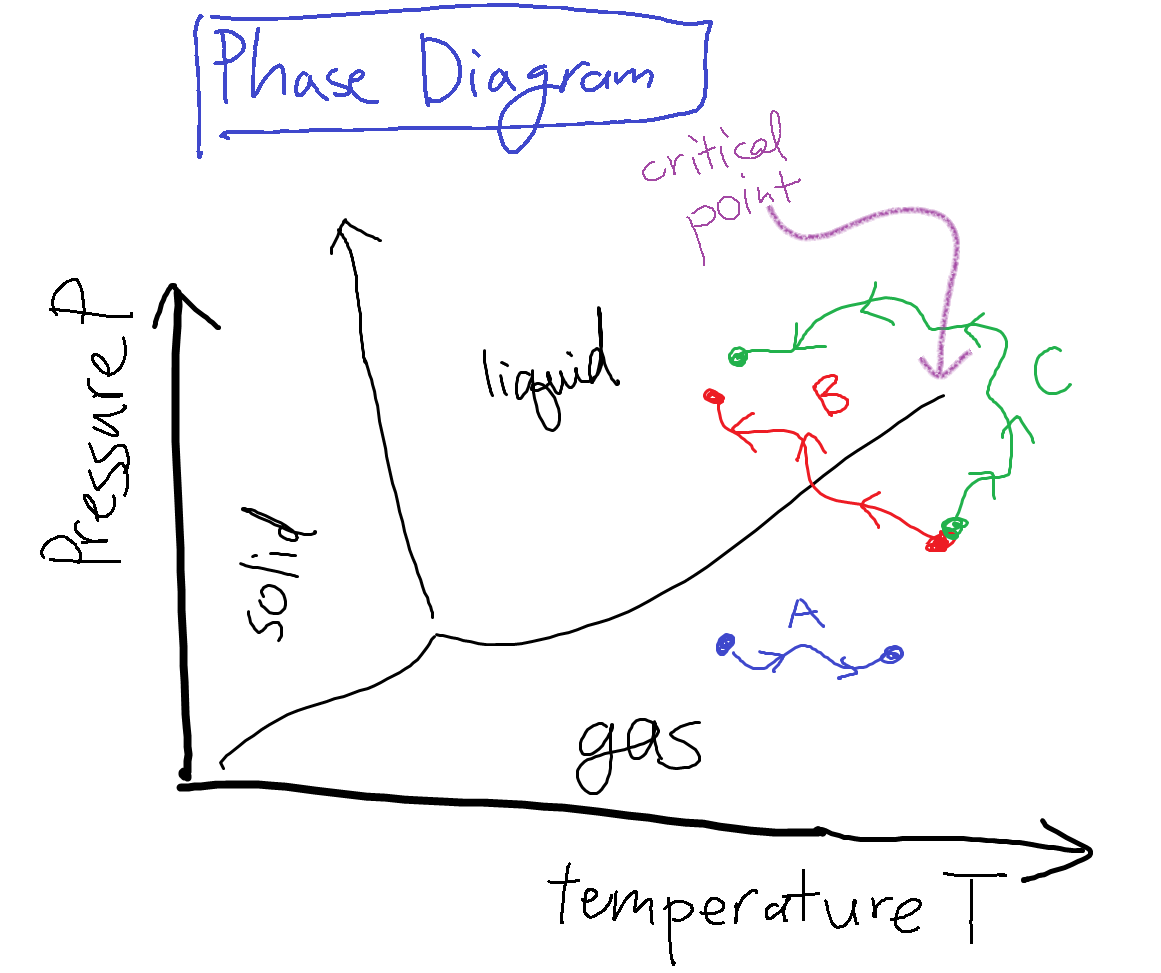 Phase Diagram
critical
point
Pressure P
solid
liquid
B
C
A
gas
temperature T